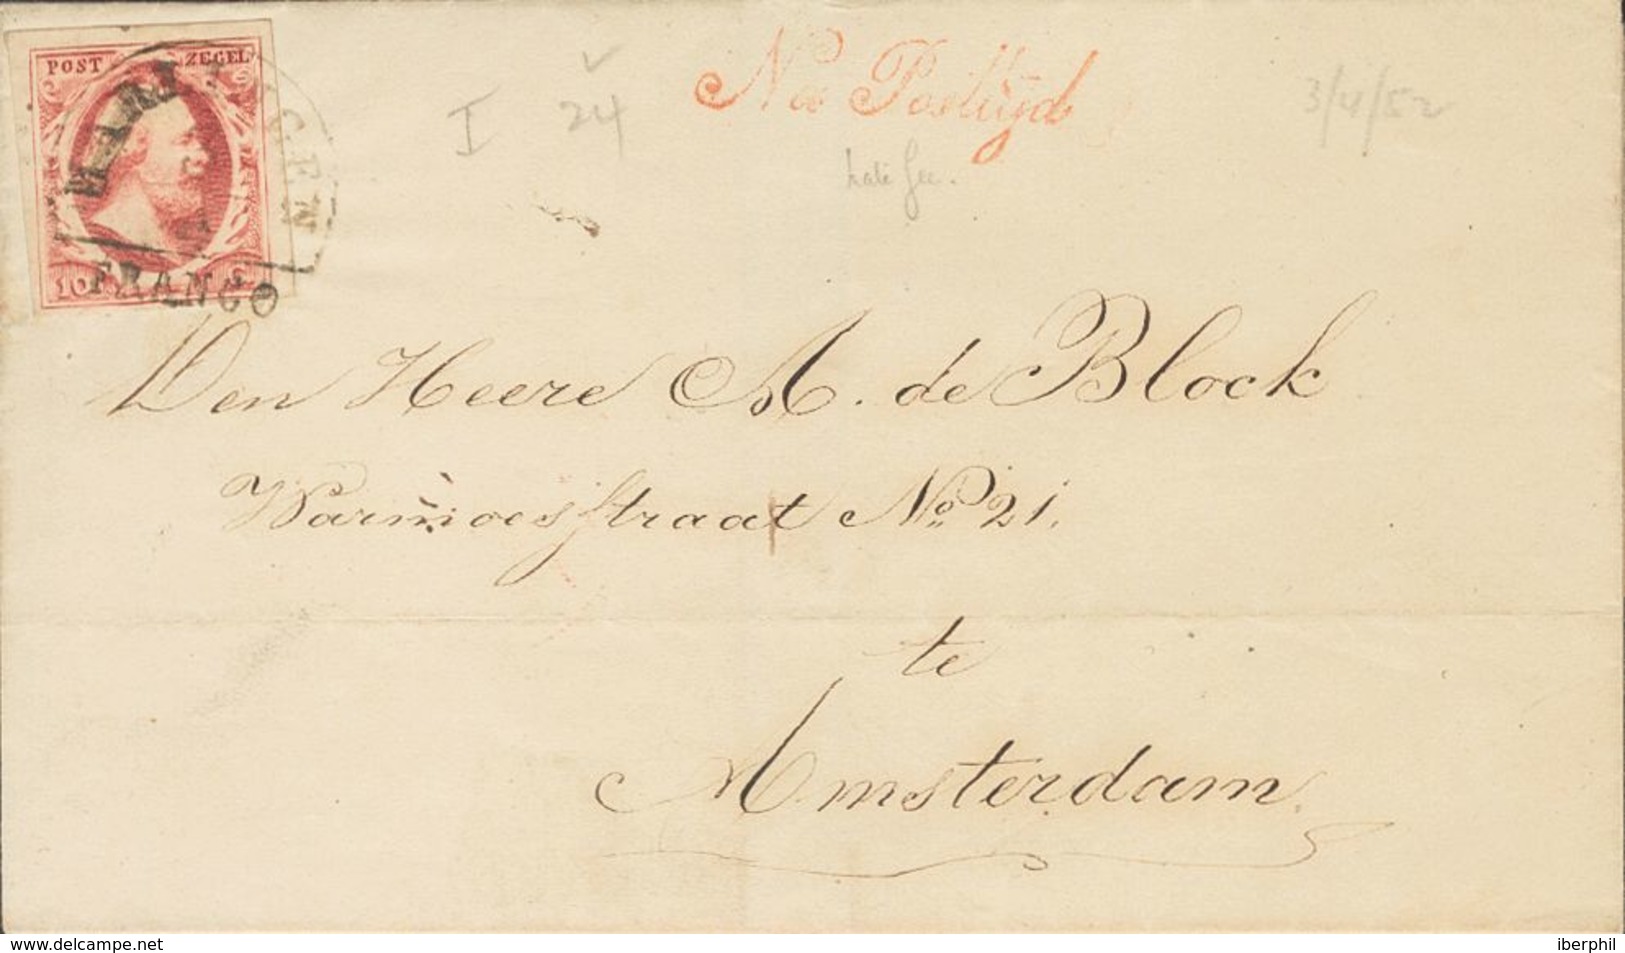 POST ZEGEL
HARLINGEN
10 C.
FRANCO
I
24
Na Posttijd
late fee.
3/4/52
Den Heere A. de Block
Warmoesstraat No. 21.
te
Amsterdam
www.delcampe.net
iberphil